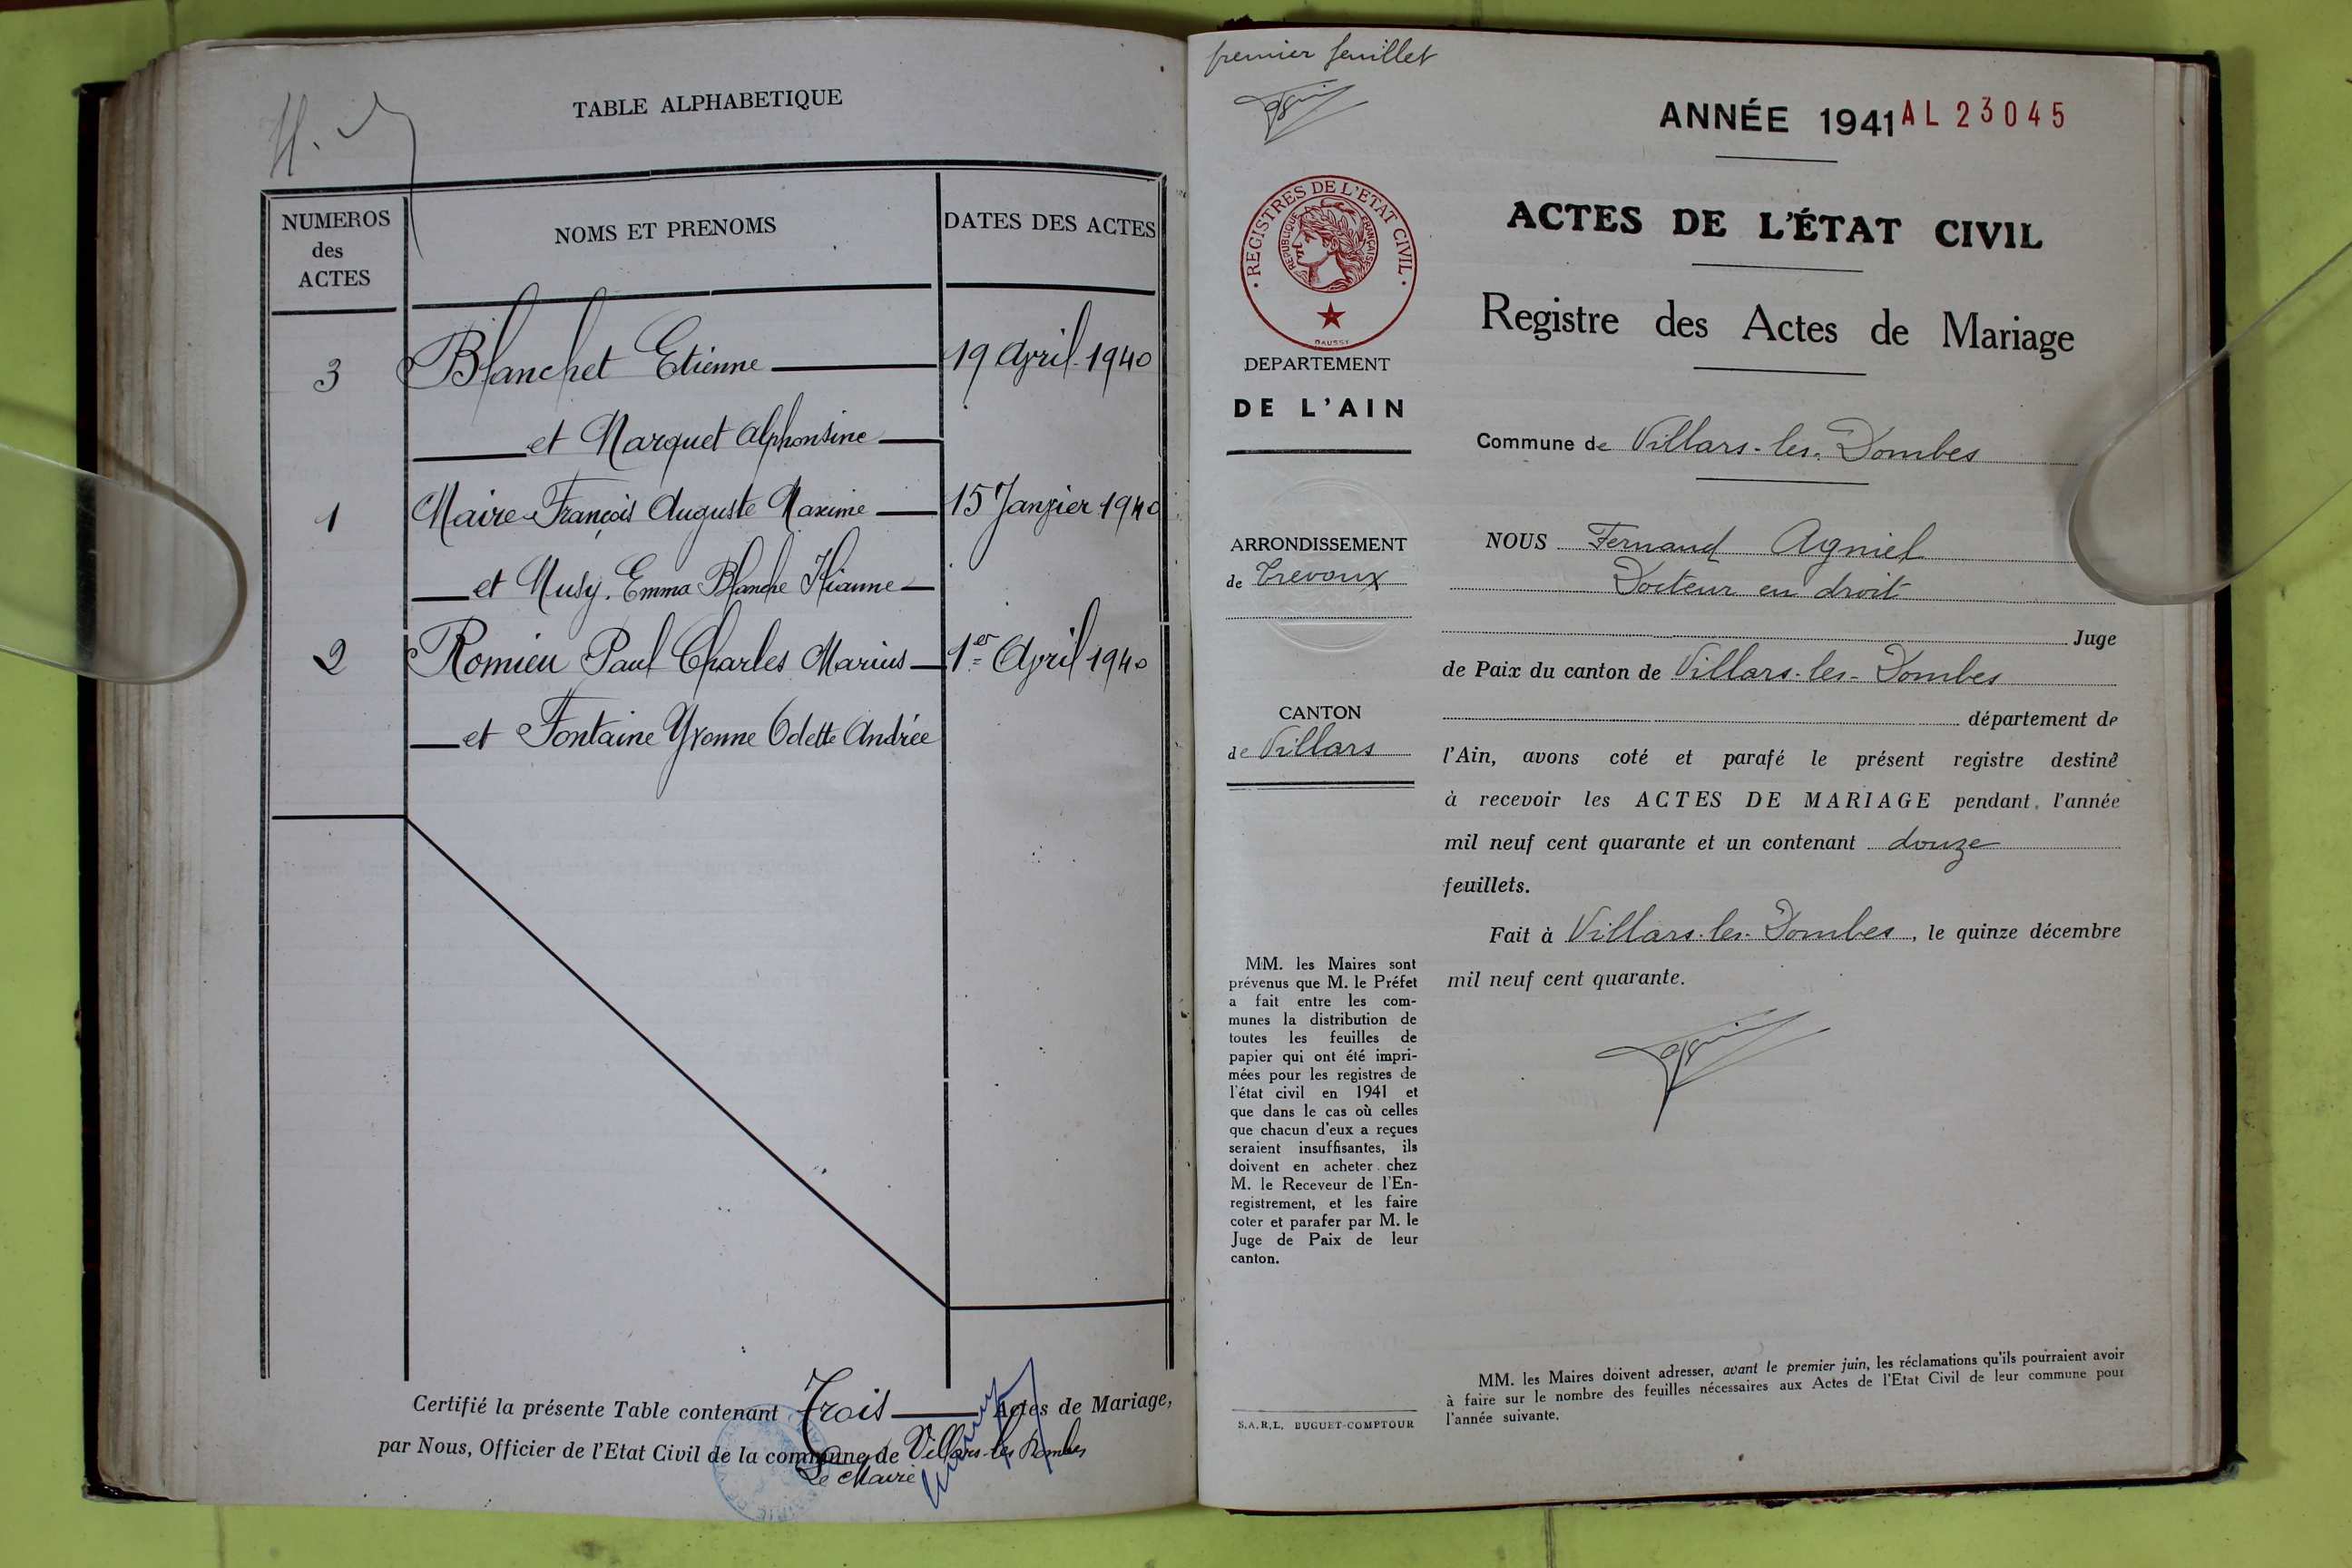 TABLE ALPHABETIQUE
NUMEROS
des
ACTES
NOMS ET PRENOMS
DATES DES ACTES
3 Blanchet Etienne 19 Avril 1940
et Marquet Alphonsine
1 Maire François Auguste Maxime 15 Janvier 1940
et Musy Emma Blanche
2 Romieu Paul Charles Marius 1er Avril 1940
et Fontaine Yvonne Odette Andrée
Certifié la présente Table contenant Trois Actes de Mariage,
par Nous, Officier de l'Etat Civil de la commune de Villars-les Dombes
Le Maire
premier feuillet
ANNÉE 1941 AL 23045
REGISTRES DE L'ETAT CIVIL
REPUBLIQUE FRANÇAISE
DEPARTEMENT
DE L'AIN
ARRONDISSEMENT
de Trévoux
CANTON
de Villars
MM. les Maires sont
prévenus que M. le Préfet
a fait entre les com-
munes la distribution de
toutes les feuilles de
papier qui ont été impri-
mées pour les registres de
l'état civil en 1941 et
que dans le cas où celles
que chacun d'eux a reçues
seraient insuffisantes, ils
doivent en acheter chez
M. le Receveur de l'En-
registrement, et les faire
coter et parafer par M. le
Juge de Paix de leur
canton.
S.A.R.L. BUGUET-COMPTOUR
ACTES DE L'ÉTAT CIVIL
Registre des Actes de Mariage
Commune de Villars-les-Dombes
NOUS Fernand Agniel
Docteur en droit
Juge
de Paix du canton de Villars-les-Dombes
département de
l'Ain, avons coté et parafé le présent registre destiné
à recevoir les ACTES DE MARIAGE pendant l'année
mil neuf cent quarante et un contenant douze
feuillets.
Fait à Villars-les-Dombes, le quinze décembre
mil neuf cent quarante.
MM. les Maires doivent adresser, avant le premier juin, les réclamations qu'ils pourraient avoir
à faire sur le nombre des feuilles nécessaires aux Actes de l'Etat Civil de leur commune pour
l'année suivante.